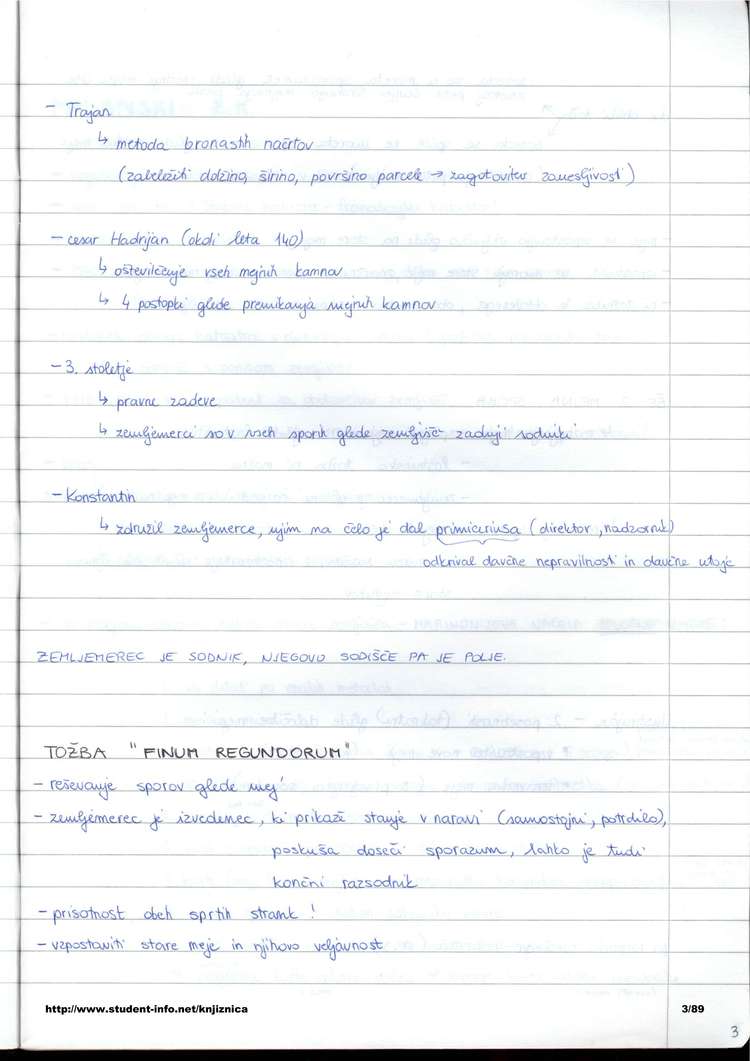 - Trajan
↳ metoda bronastih načrtov
(zabeležiti dolžino, širino, površino parcele → zagotovitev zanesljivosti)
- cesar Hadrijan (okoli leta 140)
↳ oštevilčenje vseh mejnih kamnov
↳ 4 postopki glede premikanja mejnih kamnov
- 3. stoletje
↳ pravne zadeve
↳ zemljemerci so v vseh sporih glede zemljišč zadnji sodniki
- Konstantin
↳ združil zemljemerce, njim na čelo je dal primiceriusa (direktor, nadzornik)
odkrival davčne nepravilnosti in davčne utaje
ZEMLJEMEREC JE SODNIK, NJEGOVO SODIŠČE PA JE POLJE.
TOŽBA "FINUM REGUNDORUM"
- reševanje sporov glede mej
- zemljemerec je izvedenec, ki prikaže stanje v naravi (samostojni, potrdilo),
poskuša doseči sporazum, lahko je tudi
končni razsodnik
- prisotnost obeh sprtih strank!
- vzpostaviti stare meje in njihovo veljavnost
http://www.student-info.net/knjiznica 3/89
3